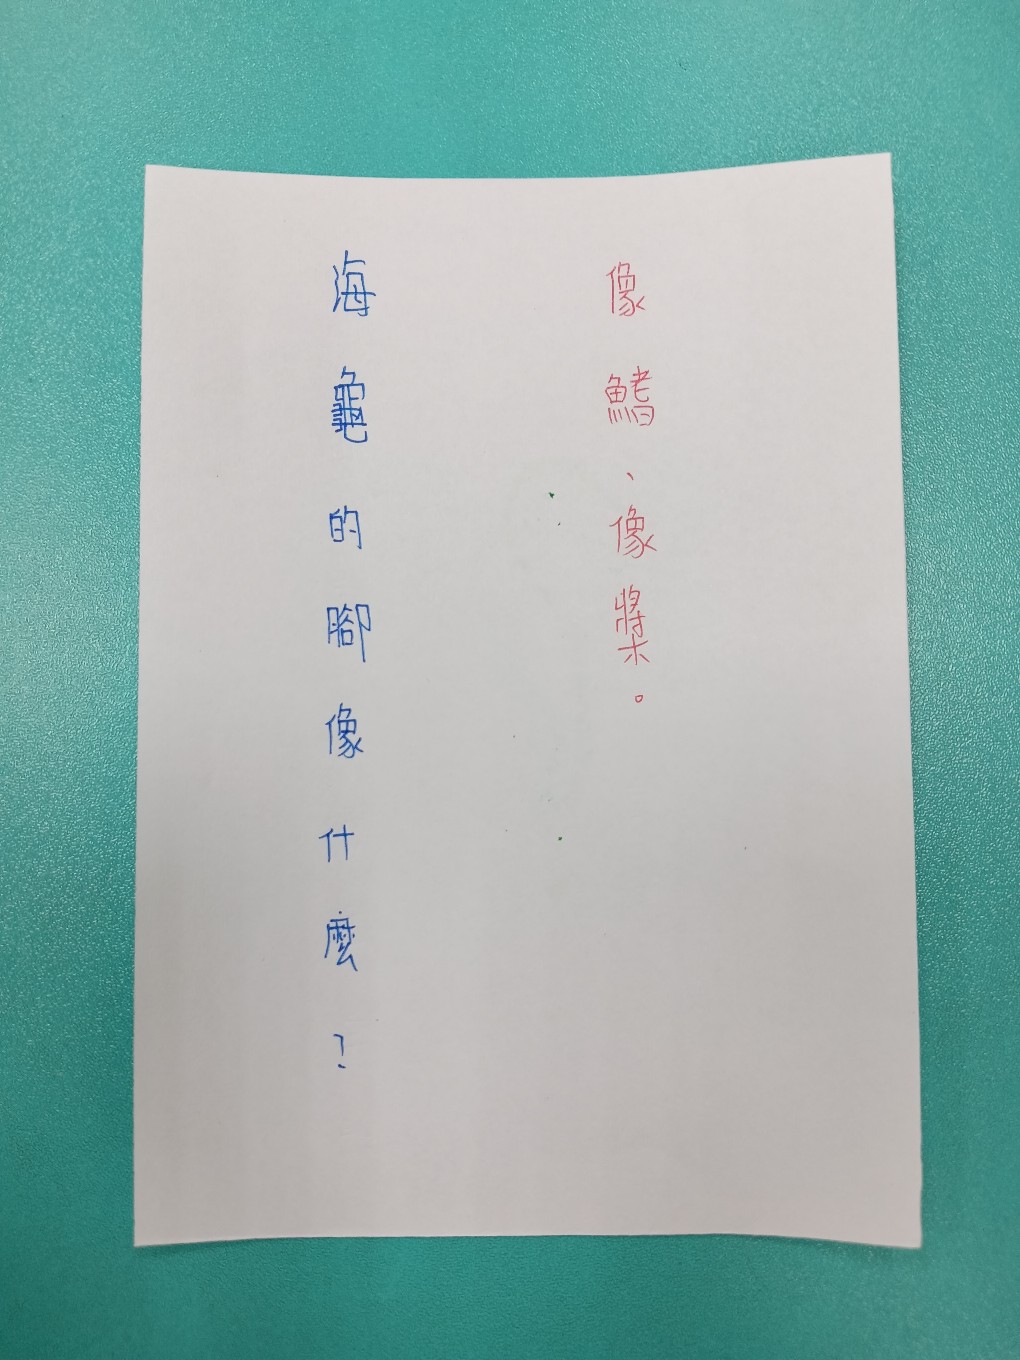 海龜的腳像什麼？
像鰭、像槳。